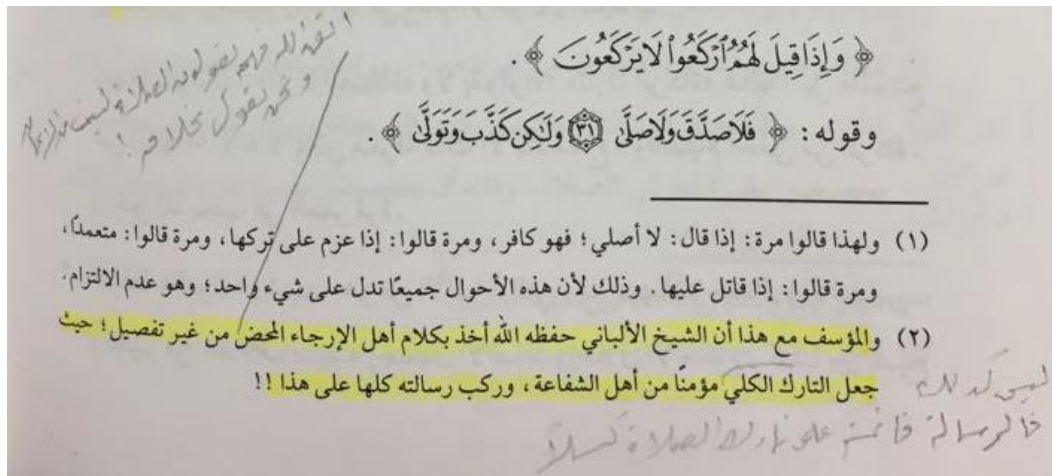 اتق الله فهم يقولون الصلاة ليست
و نحن نقول بخلافهم !
﴿ وَإِذَا قِيلَ لَهُمُ ٱرْكَعُوا۟ لَا يَرْكَعُونَ ﴾ .
وقوله : ﴿ فَلَا صَدَّقَ وَلَا صَلَّىٰ ٣١ وَلَٰكِن كَذَّبَ وَتَوَلَّىٰ ﴾ .
(١) ولهذا قالوا مرة : إذا قال : لا أصلي ؛ فهو كافر ، ومرة قالوا : إذا عزم على تركها ، ومرة قالوا : متعمدًا ،
ومرة قالوا : إذا قاتل عليها . وذلك لأن هذه الأحوال جميعًا تدل على شيء واحد ؛ وهو عدم الالتزام .
(٢) والمؤسف مع هذا أن الشيخ الألباني حفظه الله أخذ بكلام أهل الإرجاء المحض من غير تفصيل ؛ حيث
جعل التارك الكلي مؤمنًا من أهل الشفاعة ، وركب رسالته كلها على هذا !!
ليس كذلك
فالرسالة قائمة على تارك الصلاة كسلاً